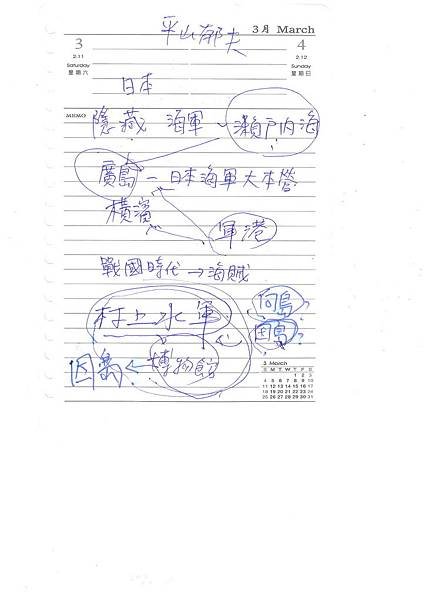 平山郁夫 3月 March
3 4
2.11 2.12
Saturday Sunday
星期六 星期日
日本
MEMO 隱藏 海軍 瀨戶內海
廣島 — 日本海軍大本營
橫濱
軍港
戰國時代 → 海賊
向島?
村上水軍
因島?
博物館
因島 ←
3 March
S M T W T F S
1 2 3
4 5 6 7 8 9 10
11 12 13 14 15 16 17
18 19 20 21 22 23 24
25 26 27 28 29 30 31